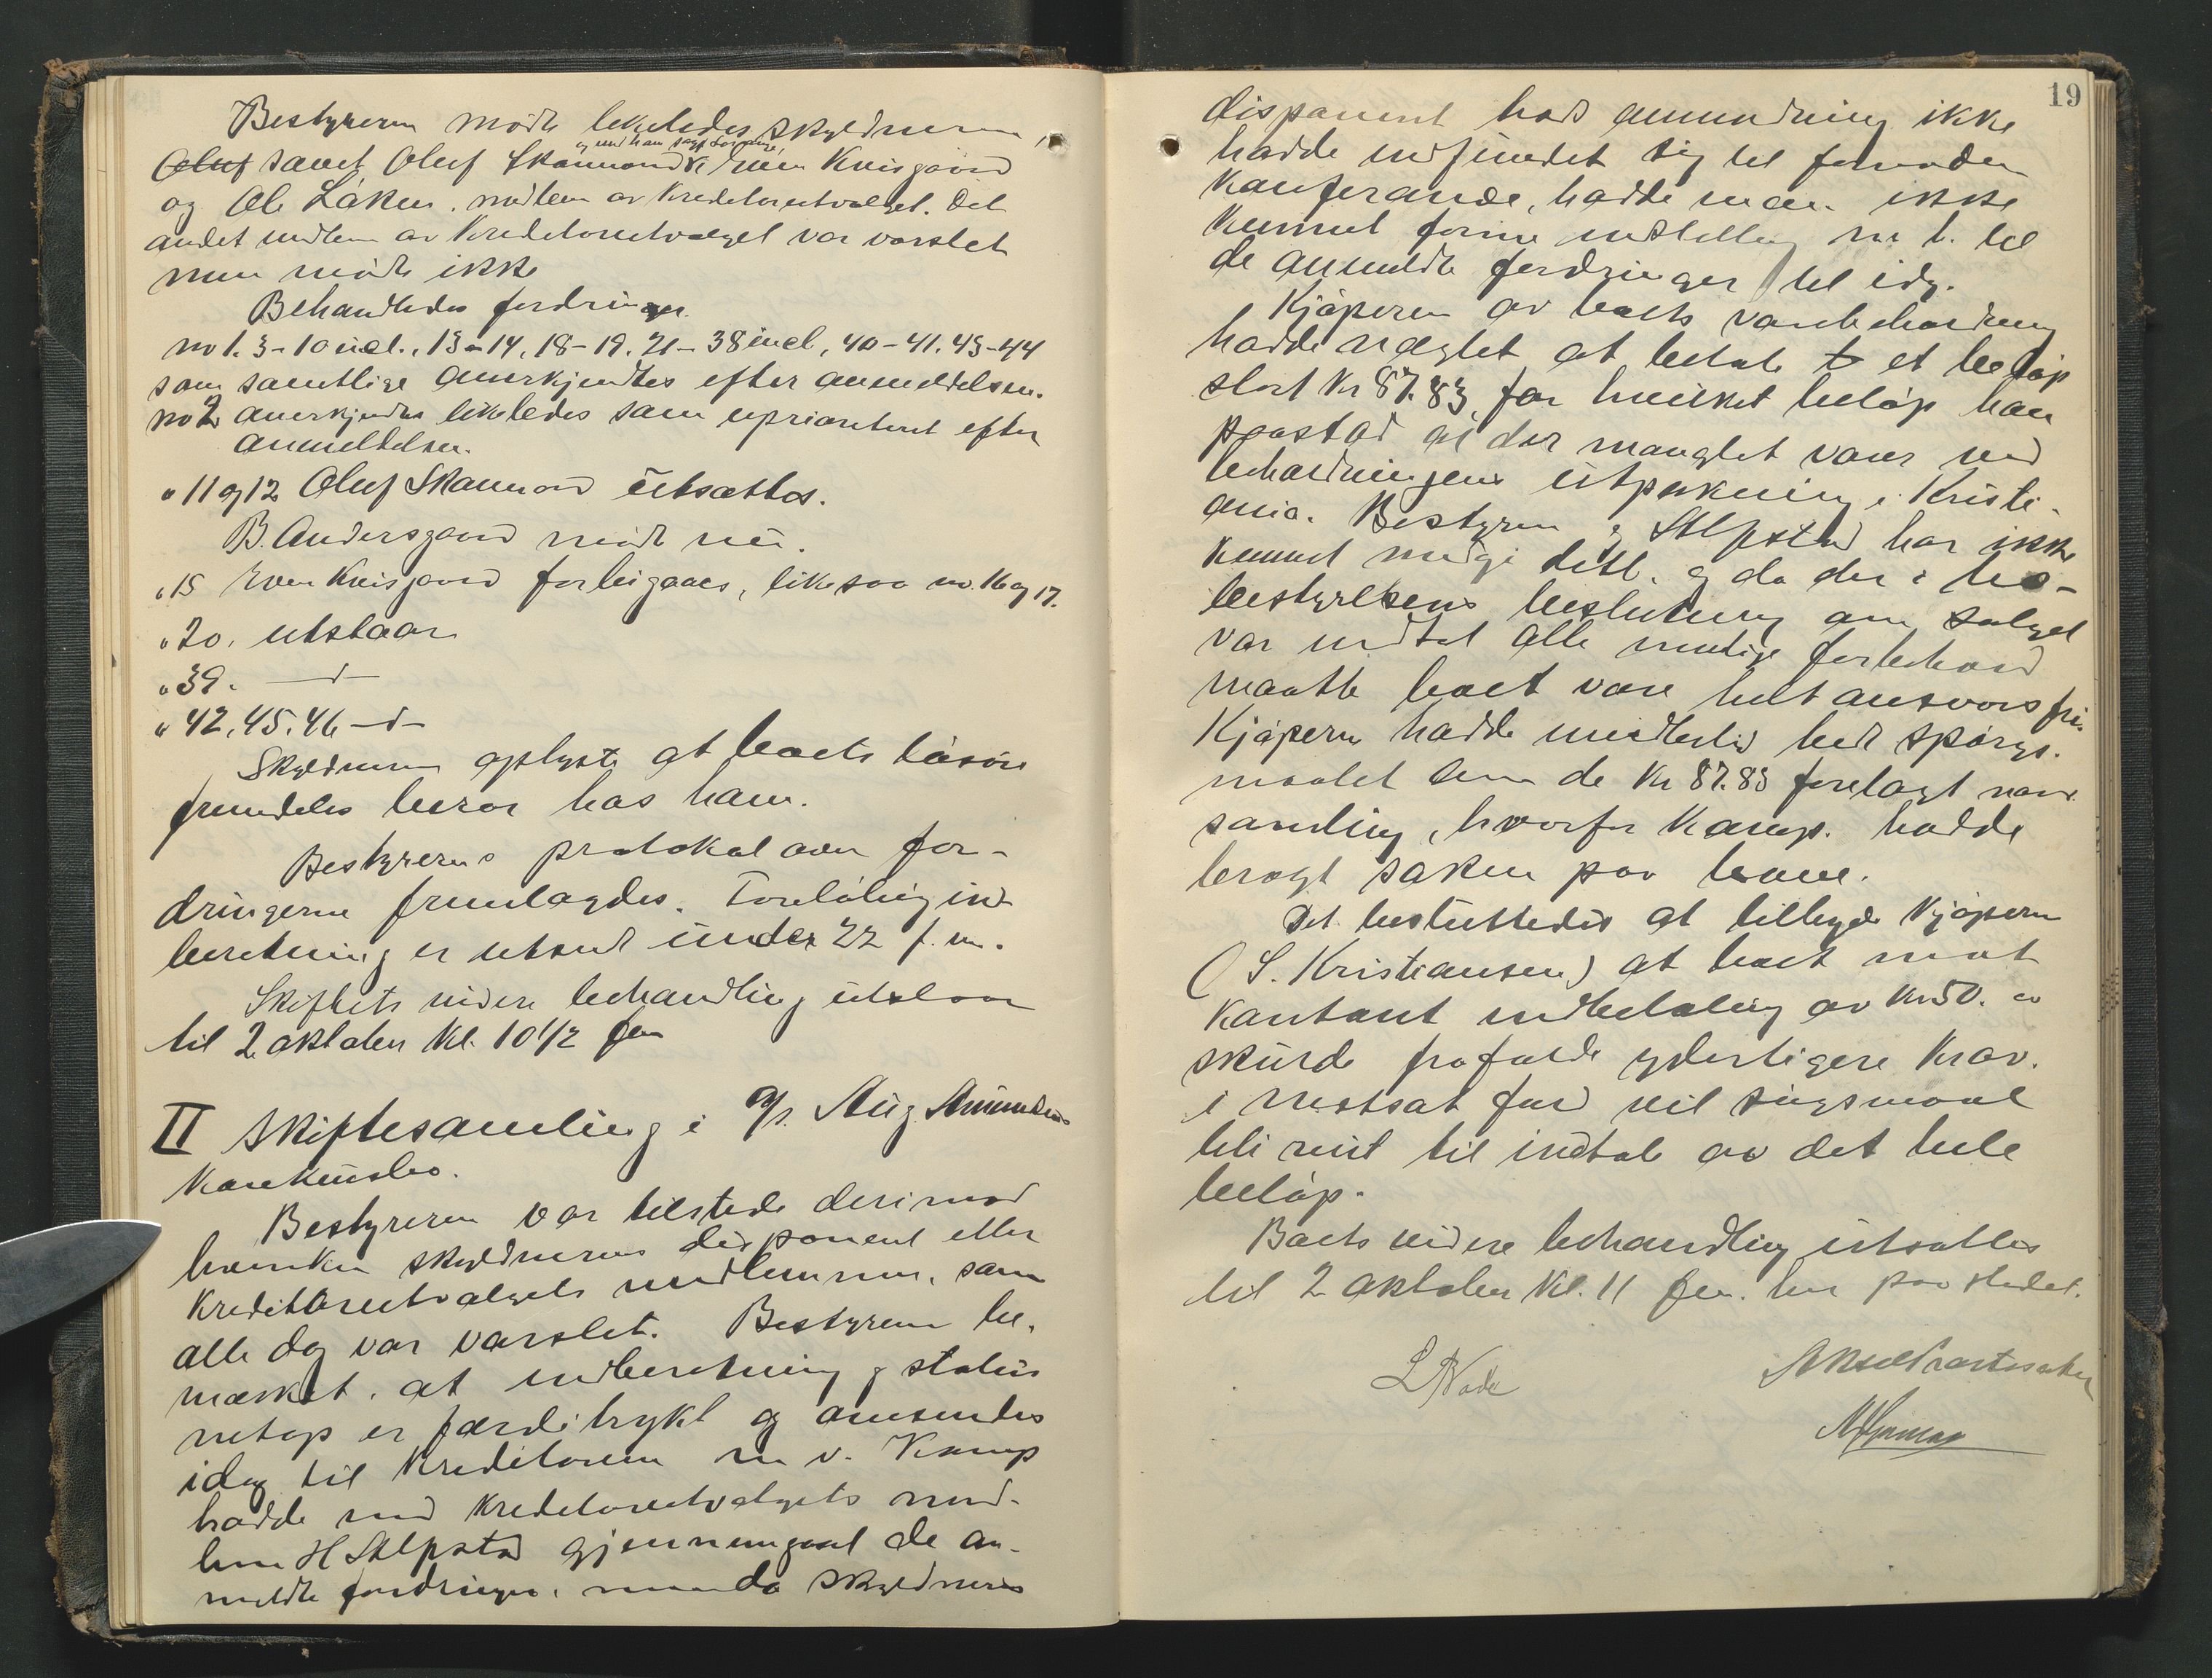 Bestyreren mødte likeledes skyldneren,
og med ham sagf.
Oluf samt Oluf Skammond Even Kvisgaard
og Ole Låken, medlem av kreditorutvalget. Det
andet medlem av Kreditorutvalget var varslet
men mødte ikke
Behandledes fordringer
no 1. 3-10 incl., 13-14, 18-19. 21-38 incl, 40-41. 43-44
som samtlige anerkjendtes efter anmeldelsen.
no 2 anerkjendes likeledes som uprioritert efter
anmeldelsen.
" 11 og 12 Oluf Skammond utsættes.
B. Andersgaard mødte nu.
" 15 Even Kvisgaard forbigaaes, likesaa no. 16 og 17.
" 20. utstaar
" 39. —d—
" 42. 45. 46 —d—
Skyldneren oplyste at boets løsøre
fremdeles beror hos ham.
Bestyrerens protokol over for-
dringerne fremlagdes. Foreløbig ind-
beretning er utsendt under 22 f. m.
Skiftets videre behandling utstaar
til 2 oktober kl. 10 1/2 fm
II Skiftesamling i A/s. Aug. Amundsens
konkursbo.
Bestyreren var tilstede derimod
hverken skyldnerens disponent eller
kreditorutvalgets medlemmer, som
alle dog var varslet. Bestyreren be-
merket, at indberetning og status
netop er færdigtrykt og omsendes
idag til kreditorerne m v. Kamp
hadde med kreditorutvalgets med-
lem H Stlpstad gjennemgaat de an-
meldte fordringer, men da skyldnerens
19
disponent trods anmodning ikke
hadde indfundet sig til
konferanse, hadde man ikke
kunnet forme indstilling m. h. til
de anmeldte fordringer til idg.
Kjøperen av boets varebeholdning
hadde nægtet at betale et beløp
stort kr 87.83, for hvilket beløp han
paastod at der manglet varer ved
beholdningens utpakning i Kristi-
ania. Bestyreren og Stlpstad har ikke
kunnet medgi dette og da der i bo-
bestyrelsens beslutning om salget
var indtat alle mulige forbehold
maatte boet være helt ansvarsfri.
Kjøperen hadde imidlertid bedt spørgs-
maalet om de kr 87.83 forelagt nær.
samling, hvorfor Kamp. hadde
bragt saken paa bane.
Det besluttedes at tilbyde kjøperen
(S. Kristiansen) at boet mot
kontant indbetaling av kr 50. -
skulde frafalde yderligere krav.
i motsat fald vil søgsmaal
bli reist til indtale av det hele
beløp.
Boets videre behandling utsattes
til 2 oktober kl. 11 fm. her paa stedet.